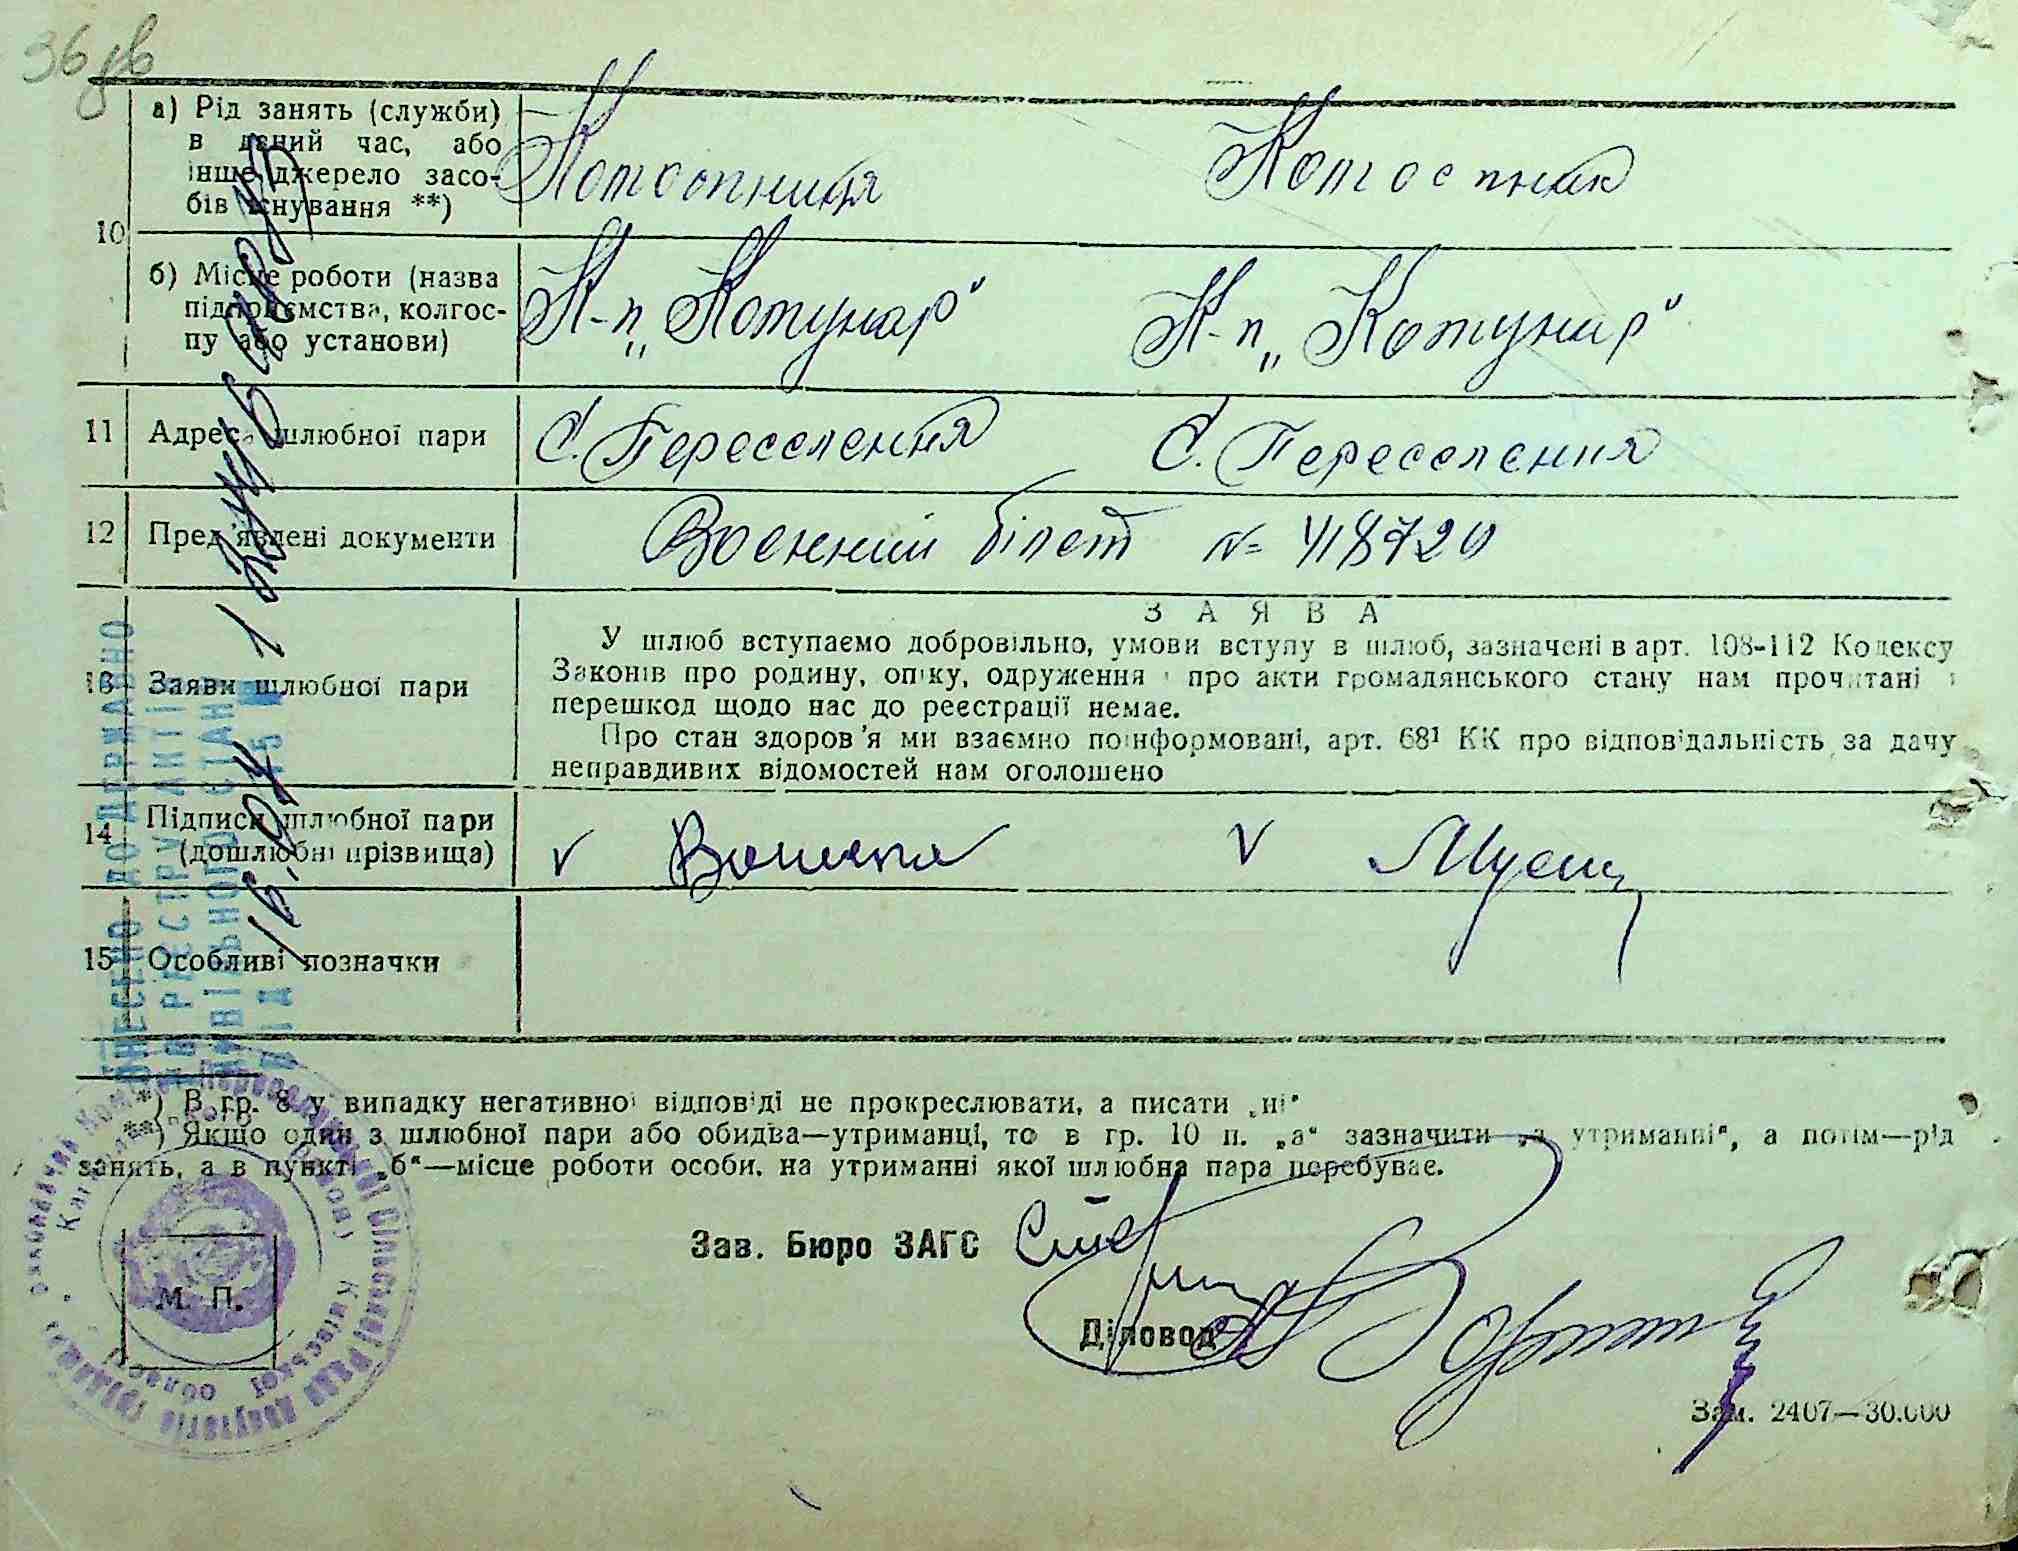 а) Рід занять (служби)
в даний час, або
інше джерело засо-
бів існування **)
10
Колгоспниця Колгоспник
б) Місце роботи (назва
підприємства, колгос-
пу або установи)
К-п „Комунар" К-п „Комунар"
11 Адреса шлюбної пари с. Переселення с. Переселення
12 Пред'явлені документи Воєнний білет № 418720
13 Заяви шлюбної пари
ЗАЯВА
У шлюб вступаємо добровільно, умови вступу в шлюб, зазначені в арт. 108-112 Кодексу
Законів про родину, опіку, одруження і про акти громадянського стану нам прочитані і
перешкод щодо нас до реєстрації немає.
Про стан здоров'я ми взаємно поінформовані, арт. 68¹ КК про відповідальність за дачу
неправдивих відомостей нам оголошено
14 Підписи шлюбної пари
(дошлюбні прізвища)
V V
15 Особливі позначки
ВНЕСЕНО ДО ДЕРЖАВНО
РЕЄСТРУ АКТІВ
ЦИВІЛЬНОГО СТАН
ВІД
*) В гр. 8 у випадку негативної відповіді не прокреслювати, а писати „ні"
**) Якщо один з шлюбної пари або обидва—утриманці, то в гр. 10 п. „а" зазначити „з утриманні", а потім—рід
занять, а в пункті „б"—місце роботи особи, на утриманні якої шлюбна пара перебуває.
Зав. Бюро ЗАГС
М. П.
Діловод
Зам. 2407—30.000